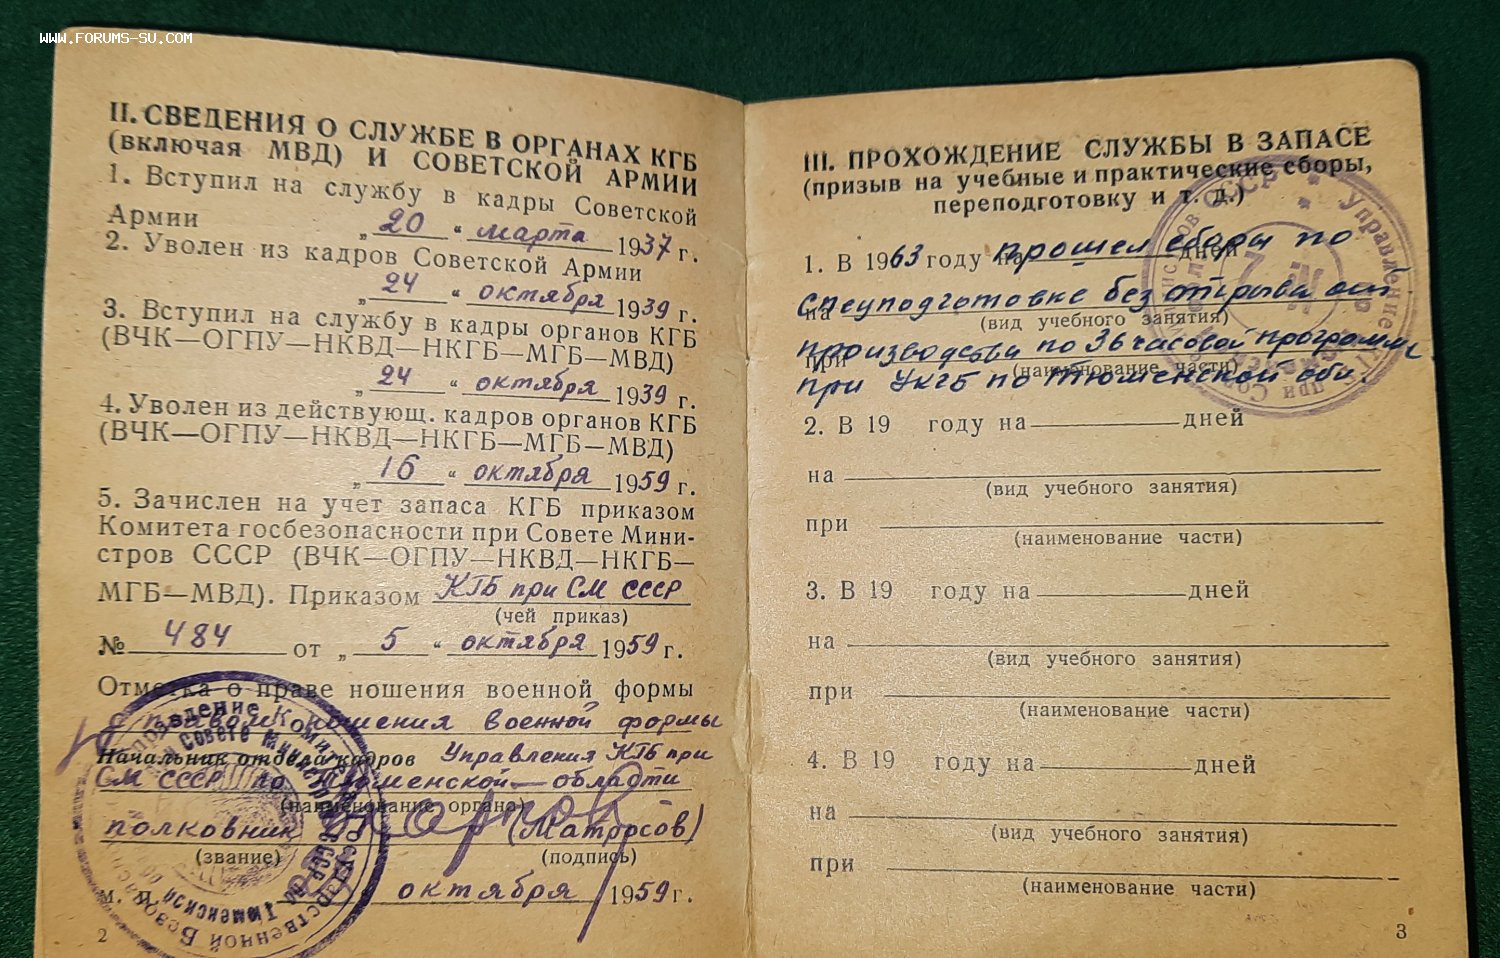 WWW.FORUMS-SU.COM
II. СВЕДЕНИЯ О СЛУЖБЕ В ОРГАНАХ КГБ
(включая МВД) И СОВЕТСКОЙ АРМИИ
1. Вступил на службу в кадры Советской
Армии „20“ марта 1937 г.
2. Уволен из кадров Советской Армии
„24“ октября 1939 г.
3. Вступил на службу в кадры органов КГБ
(ВЧК—ОГПУ—НКВД—НКГБ—МГБ—МВД)
„24“ октября 1939 г.
4. Уволен из действующ. кадров органов КГБ
(ВЧК—ОГПУ—НКВД—НКГБ—МГБ—МВД)
„16“ октября 1959 г.
5. Зачислен на учет запаса КГБ приказом
Комитета госбезопасности при Совете Мини-
стров СССР (ВЧК—ОГПУ—НКВД—НКГБ—
МГБ—МВД). Приказом КГБ при СМ СССР
(чей приказ)
№ 484 от „5“ октября 1959 г.
Отметка о праве ношения военной формы
с правом ношения военной формы
Начальник отдела кадров Управления КГБ при
СМ СССР по Тюменской области
(наименование органа)
полковник (Маторсов)
(звание) (подпись)
М. П. октября 1959 г.
2
III. ПРОХОЖДЕНИЕ СЛУЖБЫ В ЗАПАСЕ
(призыв на учебные и практические сборы,
переподготовку и т. д.)
1. В 1963 году на прошел сборы по дней
на спецподготовке без отрыва от
(вид учебного занятия)
при производства по 36 часовой программе
(наименование части)
при УКГБ по Тюменской обл.
2. В 19 году на дней
на
(вид учебного занятия)
при
(наименование части)
3. В 19 году на дней
на
(вид учебного занятия)
при
(наименование части)
4. В 19 году на дней
на
(вид учебного занятия)
при
(наименование части)
3